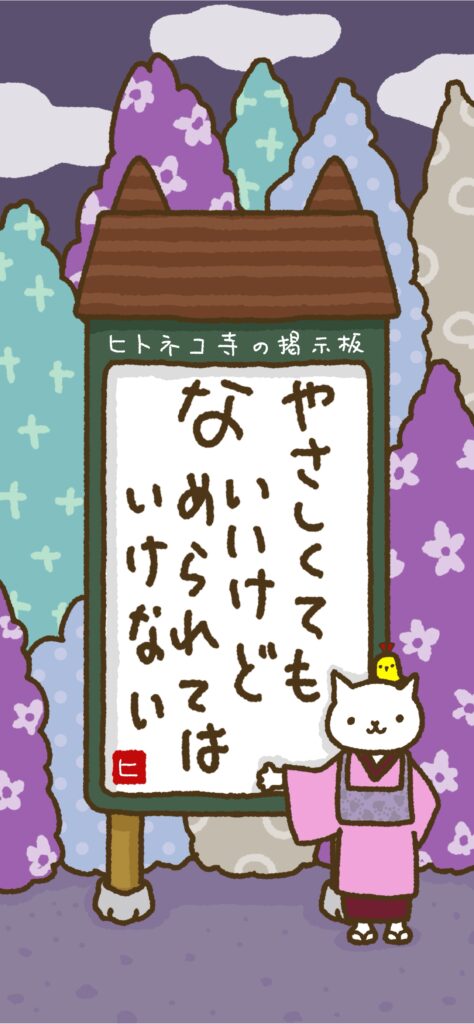 ヒトネコ寺の掲示板
やさしくても
いいけど
なめられては
いけない
ヒ